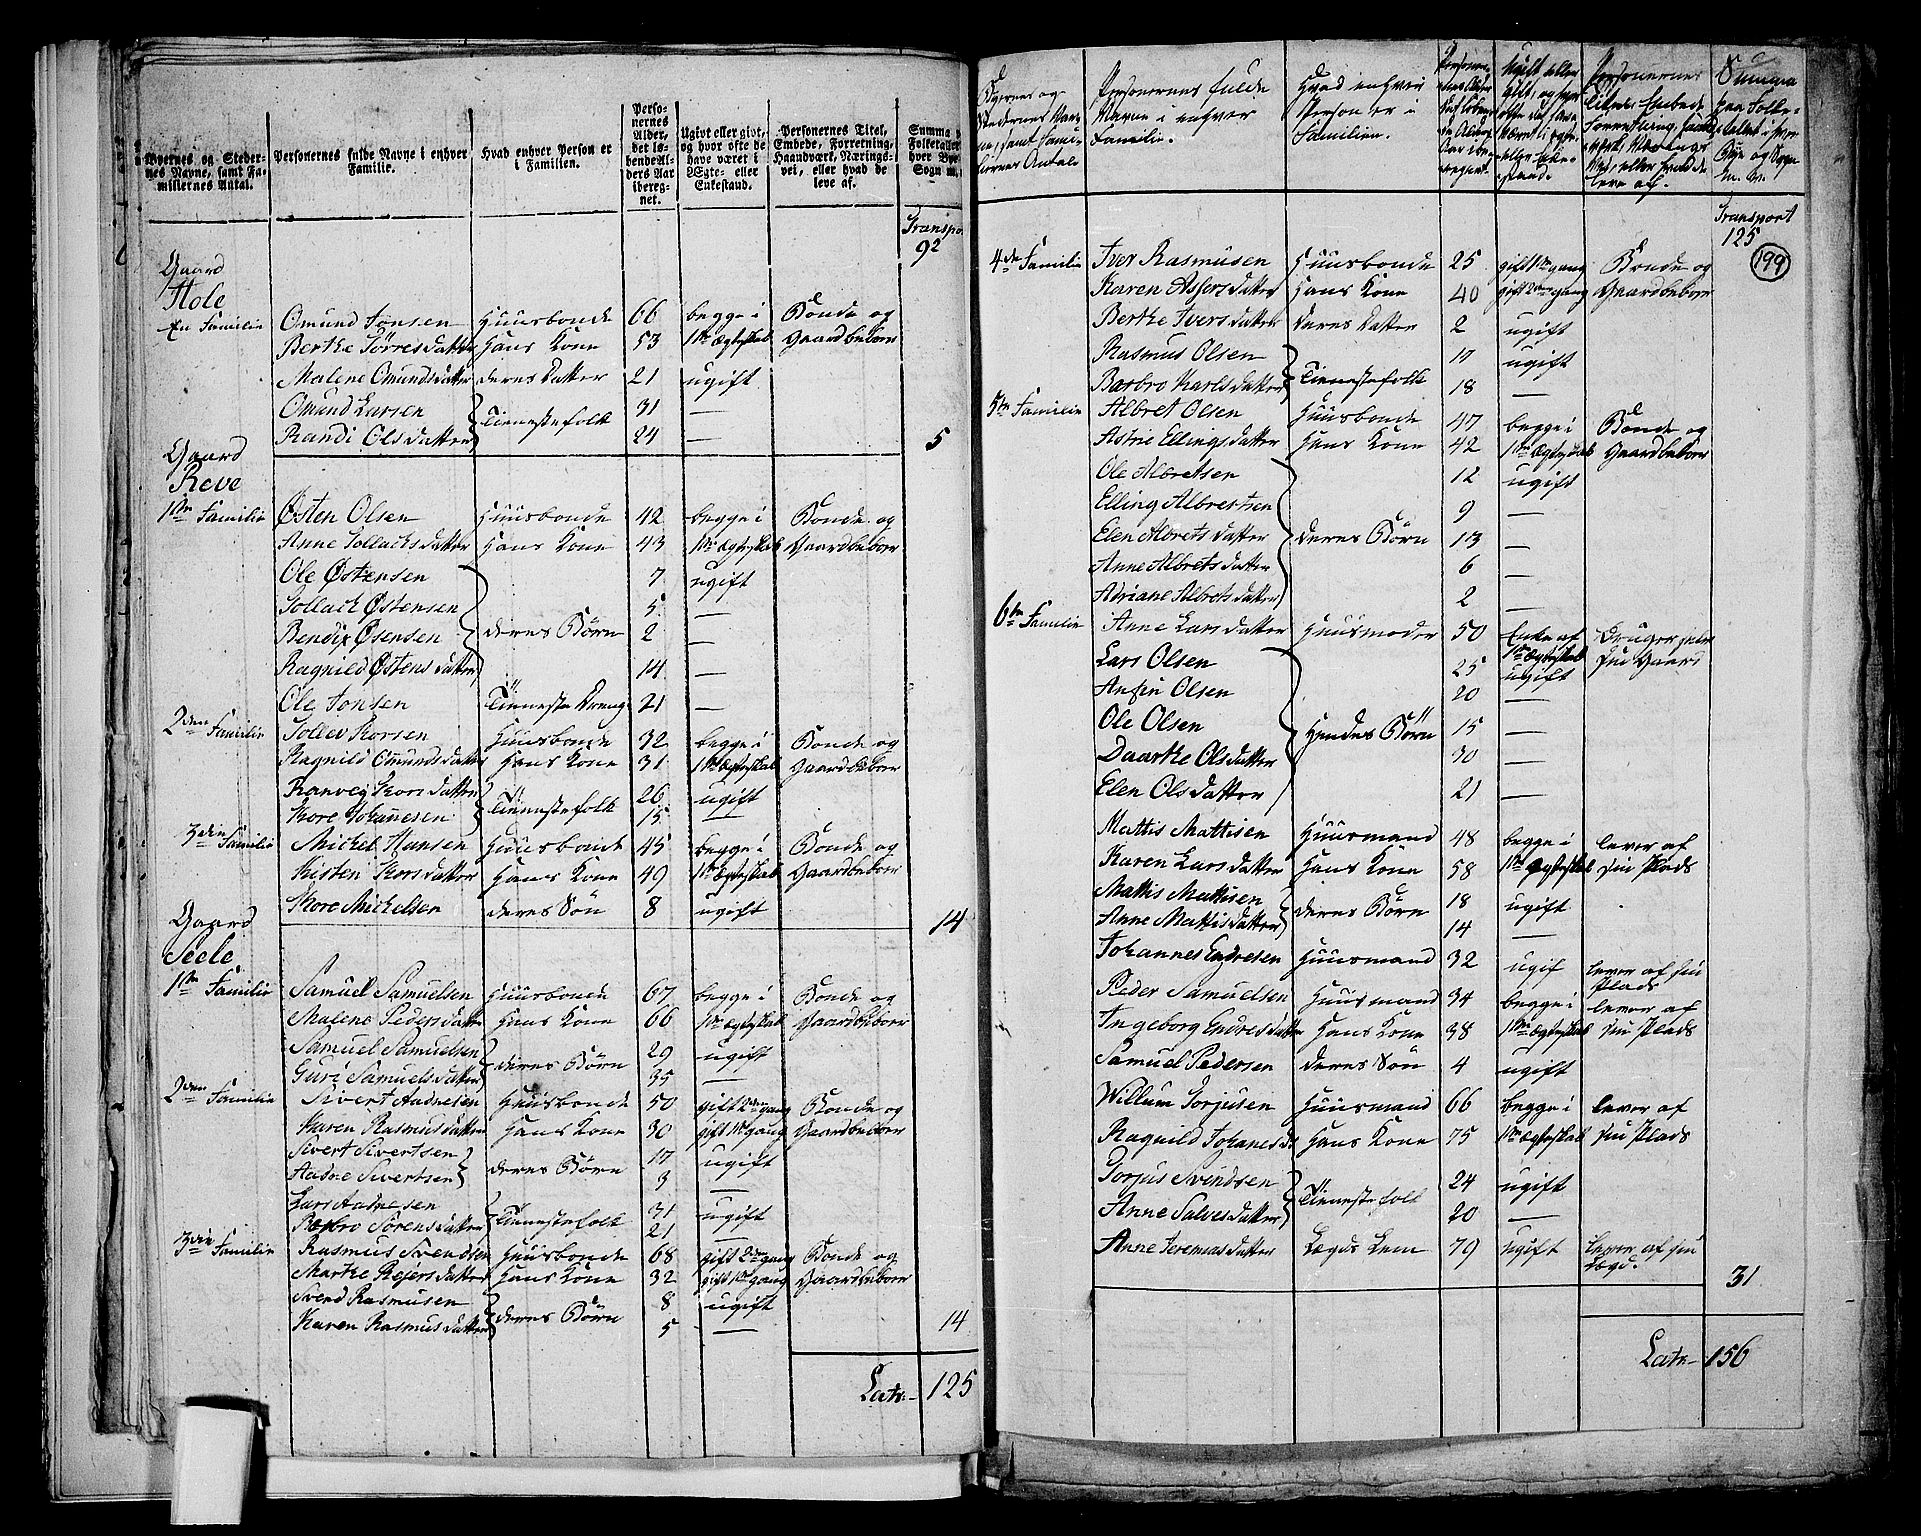 Byernes og Steder-
nes Navne, samt Fa-
milliernes Antal.
Personernes fulde Navne i enhver
Familie.
Hvad enhver Person er
i Familien.
Perso-
nernes
Alder,
det lø-
bende Al-
ders Aar
ibereg-
net.
Ugivt eller givt,
og hvor ofte de
have været i
Ægte- eller
Enkestand.
Personernes Titel,
Embede, Forretning,
Haandværk, Nærings-
vei, eller hvad de
leve af.
Summa
Folketallet
hver By
Sogn m.
Transpo
92
Gaard
Hole
En Familie Omund Jonsen Huusbonde 66 begge i Bonde og
Berthe Torresdatter Hans Kone 53 1ste Ægteskab Gaardbeboer
Malene Omundsdatter deres Datter 21 ugift
Omund Larsen Tienestefolk 31 —
Randi Olsdatter 24 — 5
Gaard
Reve
1ste Familie Østen Olsen Huusbonde 42 begge i Bonde og
Anne Tollachsdatter Hans Kone 43 1ste Ægteskab Gaardbeboer
Ole Østensen 7 ugift
Tollach Østensen 5 —
Bendix Øsensen deres Børn 2 —
Ragnild Østensdatter 14 —
Ole Jonsen Tieneste Dreng 21 —
2den Familie Tollev Korsen Huusbonde 32 begge i Bonde og
Ragnild Omundsdatter Hans Kone 31 1ste Ægteskab Gaardbeboer
Ranveg Korsdatter Tienestefolk 26 ugift
Kore Johanesen 15 —
3die Familie Mickel Hansen Huusbonde 45 begge i Bonde og
Kisten Korsdatter Hans Kone 49 1ste Ægteskab Gaardbeboer
Kore Mickelsen deres Søn 8 ugift
Gaard 14
Seele
1ste Familie Samuel Samuelsen Huusbonde 67 begge i Bonde og
Malene Pedersdatter Hans Kone 66 1ste Ægteskab Gaardbeboer
Samuel Samuelsen deres Børn 29 ugift
Guri Samuelsdatter 35 —
2den Familie Sivert Aadnesen Huusbonde 50 gift 2den gang Bonde og
Karen Rasmusdatter Hans Kone 30 gift 1ste gang Gaardbeboer
Sivert Sivertsen deres Børn 17 ugift
Aadne Sivertsen 3 —
Lars Aadnesen Tienestefolk 31 ugift
Barbro Sørensdatter 21 —
3die Familie Rasmus Svendsen Huusbonde 68 gift 2den gang Bonde og
Marthe Rejersdatter Hans Kone 32 gift 1ste gang Gaardbeboer
Svend Rasmusen deres Børn 8 ugift
Karen Rasmusdatter 5 — 14
Latr.- 125
Byernes og
Stedernes Nav-
ne, samt Famil-
liernes Antal.
Personernes fulde
Navne i enhver
Familie.
Hvad enhver
Person er i
Familien.
Summa
Transport
125
199
4de Familie Iver Rasmusen Huusbonde 25 gift 1ste gang Bonde og
Karen Assersdatter Hans Kone 40 gift 2den gang Gaardbeboer
Berthe Iversdatter deres Datter 2 ugift
Rasmus Olsen Tienestefolk 17 ugift
Barbro Karlsdatter 18 —
5te Familie Albret Olsen Huusbonde 47 begge i Bonde og
Astrie Ellingsdatter Hans Kone 42 1ste Ægteskab Gaardbeboer
Ole Albretsen 12 ugift
Elling Albretsen 9 —
Elen Albretsdatter deres Børn 13 —
Anne Albretsdatter 6 —
Adriane Albretsdatter 2 —
6te Familie Anne Larsdatter Huusmoder 50 Enke af Bruger
1ste Ægteskab sin Gaard
Lars Olsen 25 ugift
Anfin Olsen 20 —
Ole Olsen Hendes Børn 15 —
Daarthe Olsdatter 30 —
Elen Olsdatter 21 —
Mattis Mattisen Huusmand 48 begge i lever af
Karen Larsdatter Hans Kone 58 1ste Ægteskab sin Plads
Mattis Mattisen deres Børn 18 ugift
Anne Mattisdatter 14 —
Johannes Endresen Huusmand 32 ugif lever af sin
Plads
Peder Samuelsen Huusmand 34 begge i lever af
Ingeborg Endresdatter Hans Kone 38 1ste Ægteskab sin Plads
Samuel Pedersen deres Søn 4 ugift
Willum Torjusen Huusmand 66 begge i lever af
Ragnild Johanesd Hans Kone 75 1ste Ægteskab sin Plads
Torjus Svendsen Tienestefolk 24 ugift
Anne Salvesdatter 20 —
Anne Jeremiasdatter Lægds Lem 79 ugift lever af sin
Lægd.
31
Latr- 156